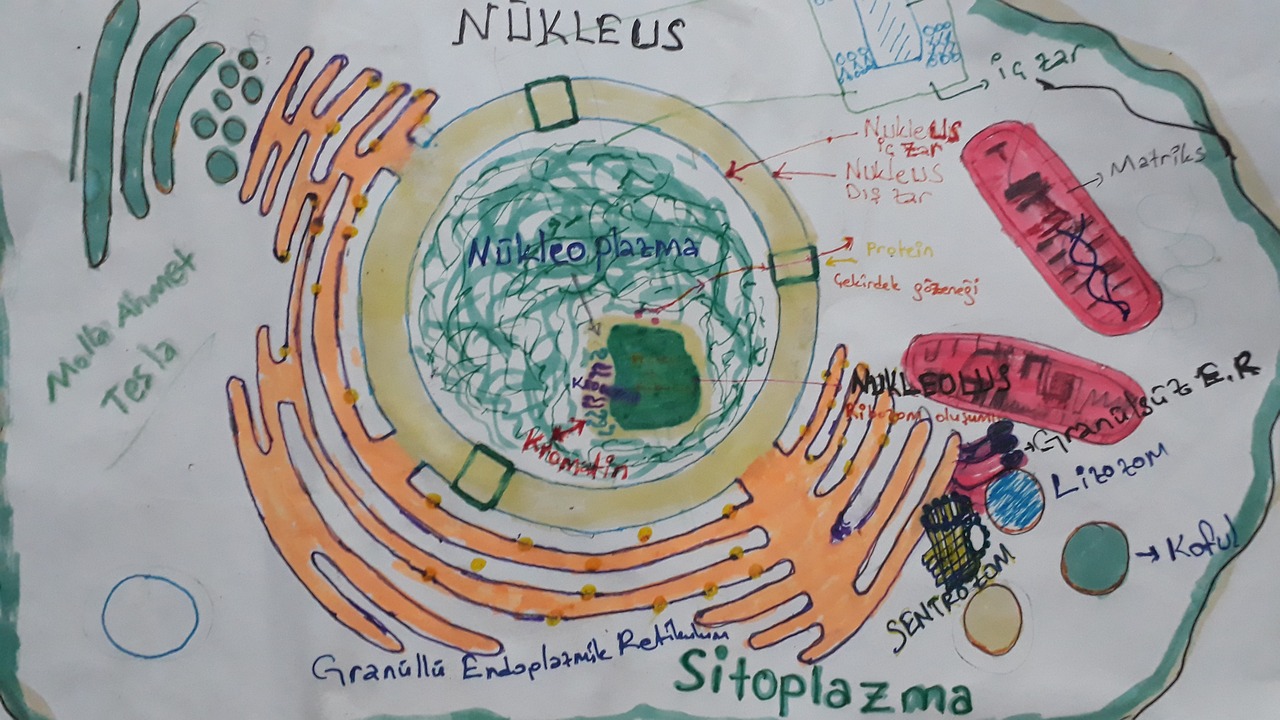 NÜKLEUS
iç zar
Nukleus
iç zar
Nukleus
Dış zar
Matriks
Nükleoplazma
Protein
Çekirdek gözeneği
Molla Ahmet
Tesla
NÜKLEOLUS
Ribozom oluşumu
Granülsüz E.R
Kromatin
Lizozom
Koful
SENTROZOM
Granüllü Endoplazmik Retikulum
Sitoplazma